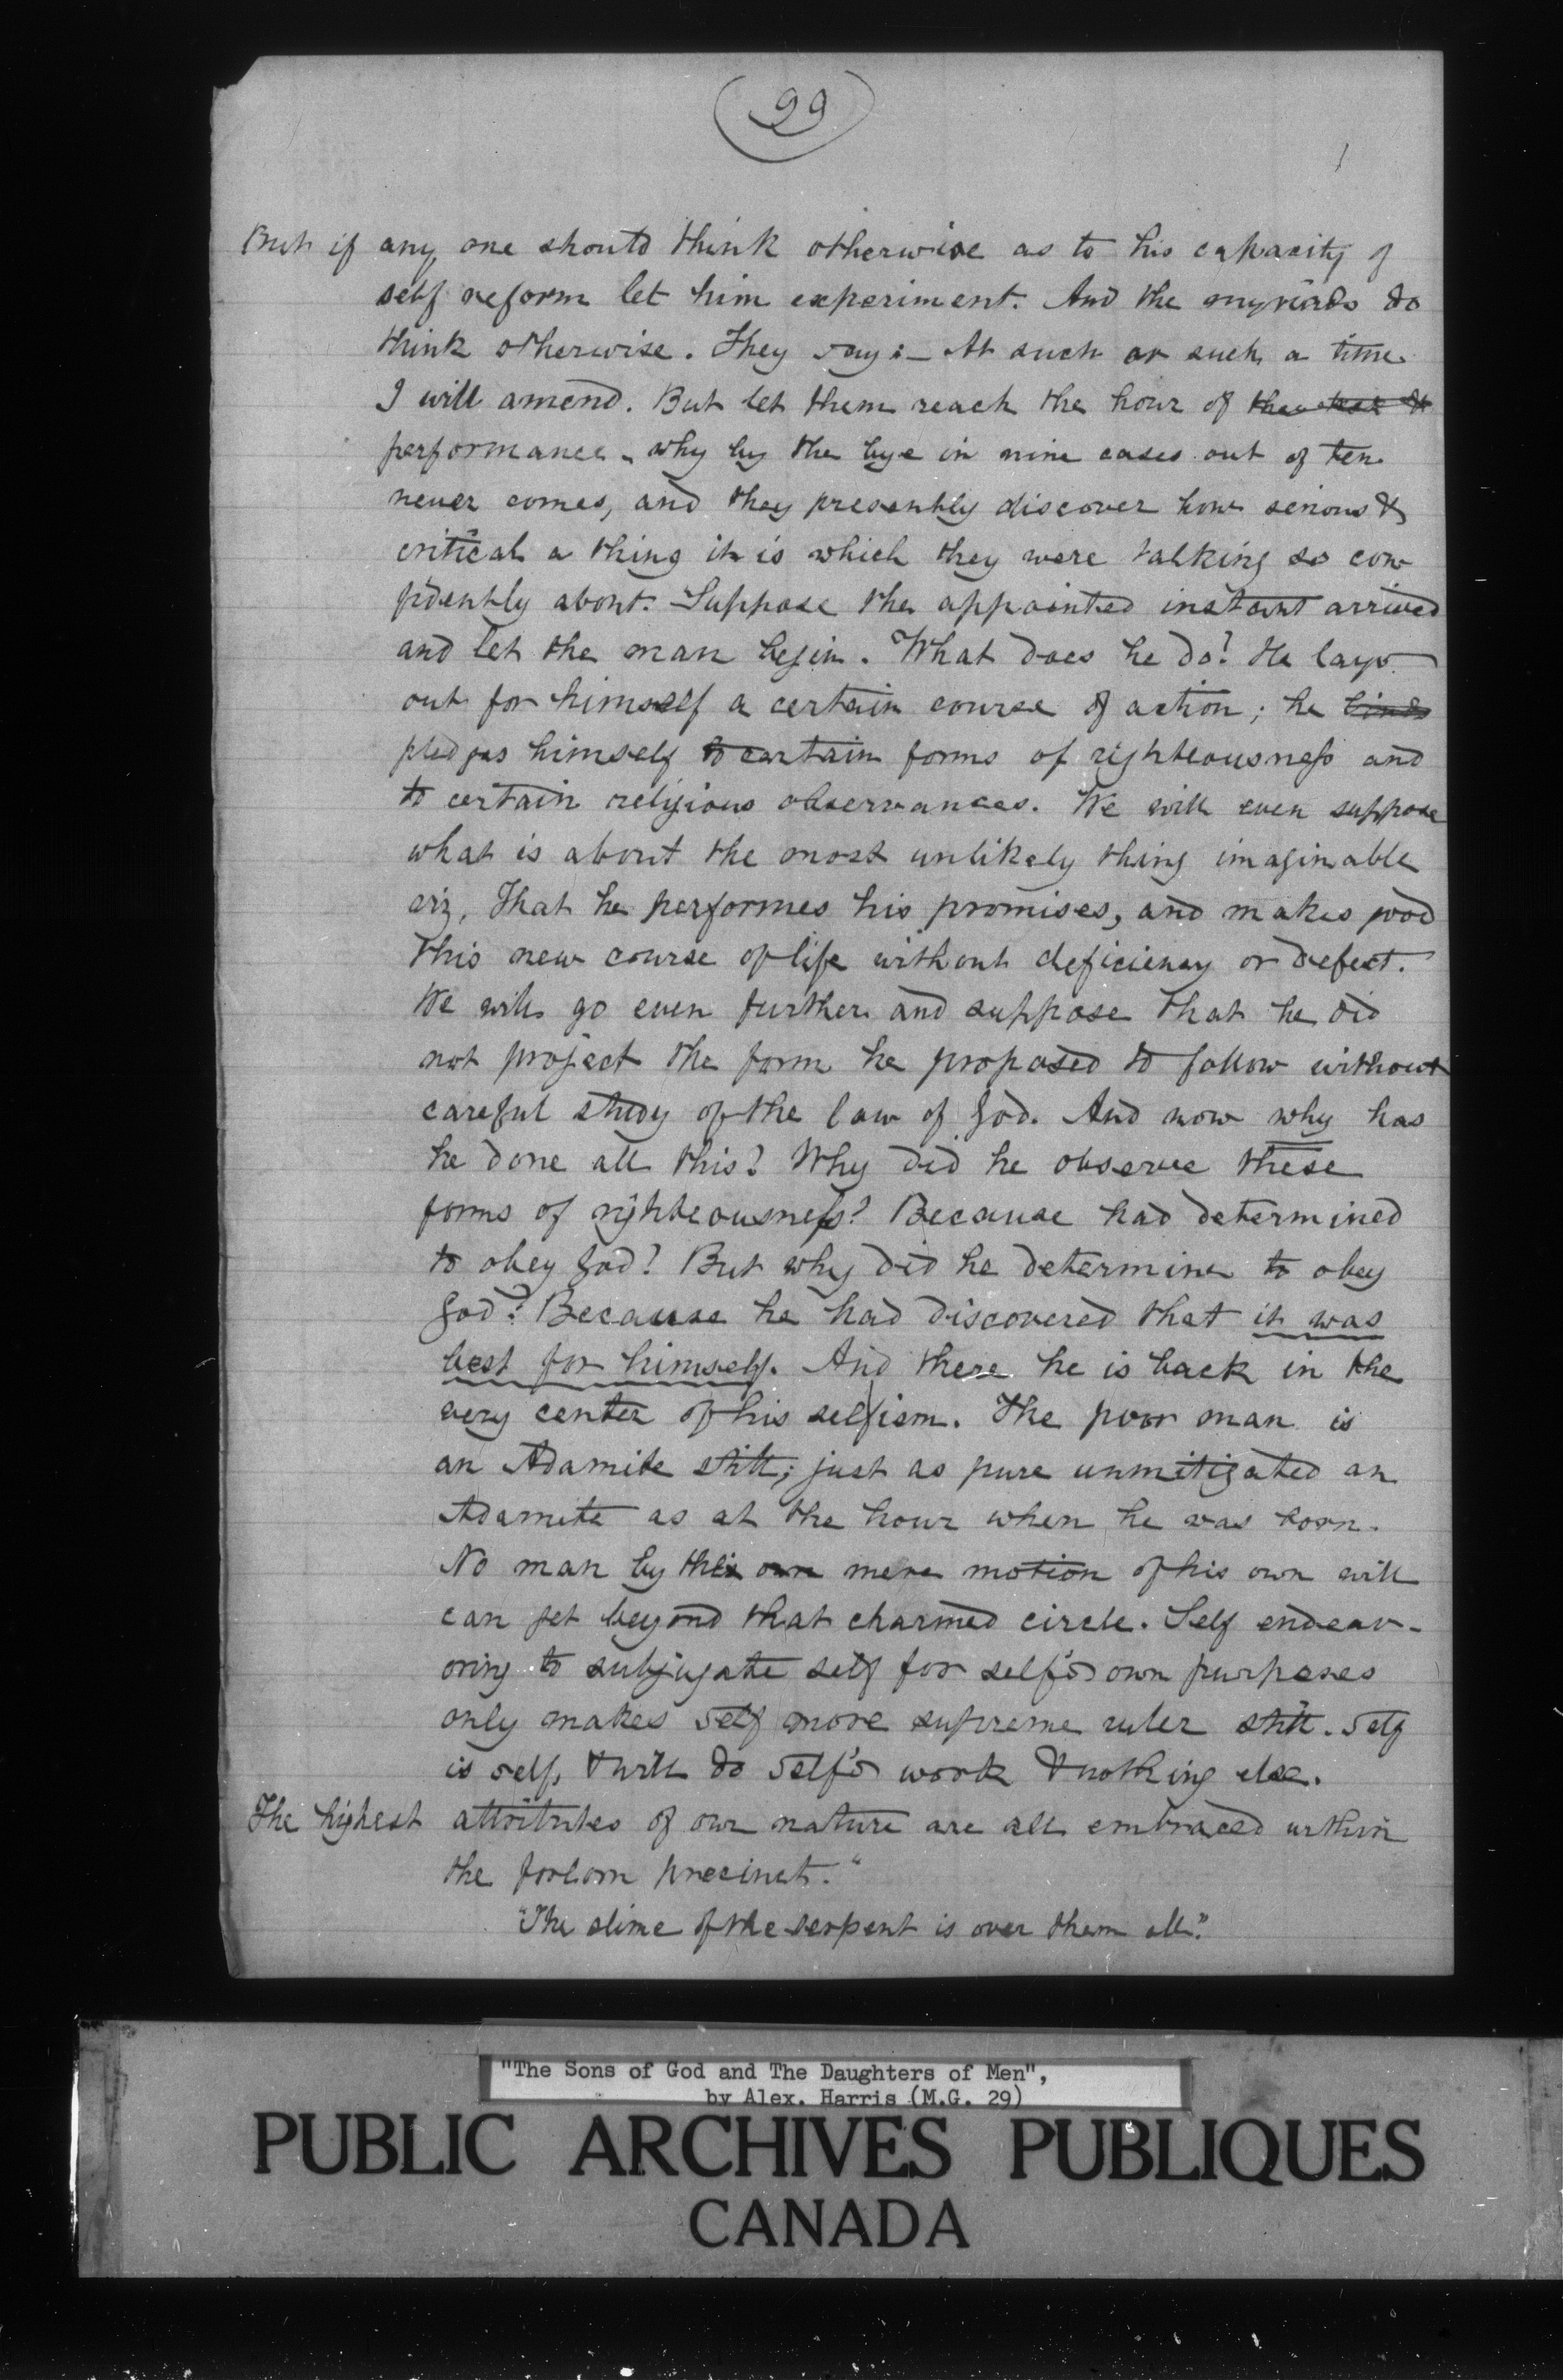 (99)
But if any one should think otherwise as to his capacity of
self reform let him experiment. And the myriads do
think otherwise. They say :— At such or such a time
I will amend. But let them reach the hour of
performance - why by the bye in nine cases out of ten
never comes, and they presently discover how serious &
critical a thing it is which they were talking so con
fidently about. Suppose the appointed instant arrived
and let the man begin. What does he do? He lays
out for himself a certain course of action; he binds
pledges himself to certain forms of righteousness and
to certain religious observances. We will even suppose
what is about the most unlikely thing imaginable
viz, That he performes his promises, and makes good
this new course of life without deficiency or defect.
We will go even further and suppose that he did
not project the form he proposed to follow without
careful study of the law of God. And now why has
he done all this? Why did he observe these
forms of righteousness? Because had determined
to obey God? But why did he determine to obey
God? Because he had discovered that it was
best for himself. And there he is back in the
very center of his selfism. The poor man is
an Adamite still; just as pure unmitigated an
Adamite as at the hour when he was born.
No man by the own mere motion of his own will
can get beyond that charmed circle. Self endeav-
oring to subjugate self for self's own purposes
only makes self more supreme ruler still. Self
is self, & will do self's work & nothing else.
The highest attributes of our nature are all embraced within
the forlorn precinct."
"The slime of the serpent is over them all."
"The Sons of God and The Daughters of Men",
by Alex. Harris (M.G. 29)
PUBLIC ARCHIVES PUBLIQUES
CANADA